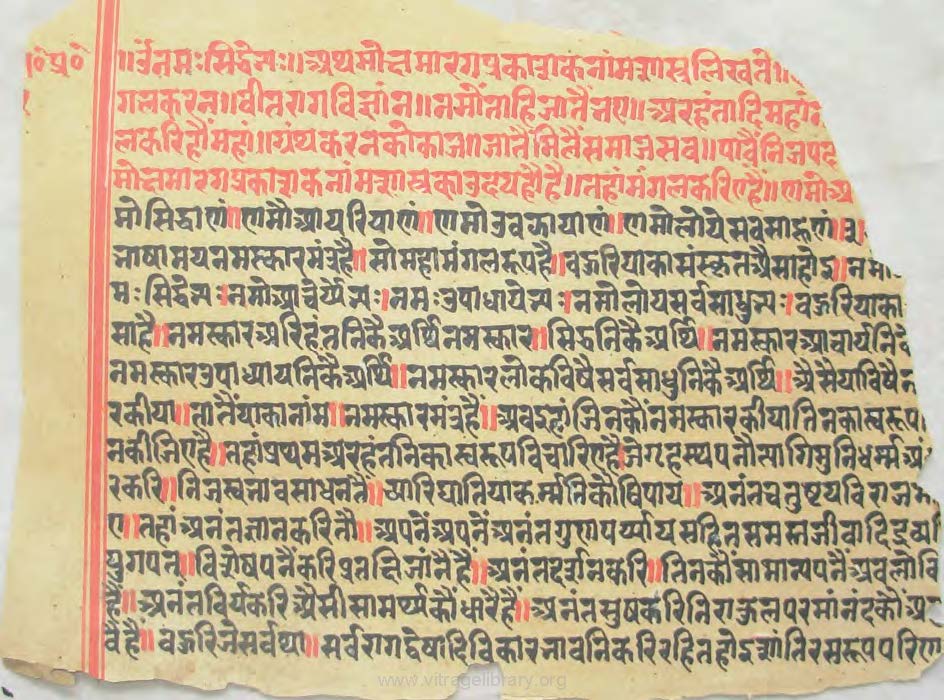 मो०प्र० ॥ॐनमःसिद्धेभ्यः॥अथमोक्षमारगप्रकाशकनांमशास्त्रलिख्यते॥
गलकरन॥वीतरागविज्ञांन॥नमौंताहिजातैंभए॥अरहंतादिमहांन
लकरिहौंमहां॥ग्रंथकरनकोकाज॥जातैंमिलैंसमाजसब॥पावैंनिजपद
मोक्षमारगप्रकाशकनांमशास्त्रकाउदयहौहै॥तहांमंगलकरिएहै॥णमोअ
मोसिद्धाणं॥णमोआयरियाणं॥णमोउवझायाणं॥णमोलोयेसवसाहूणं॥
भाषामयनमस्कारमंत्रहै॥सोमहामंगलरूपहै॥बहुरियाकासंस्कृतऐसाहोइ॥नमो
मःसिद्धेभ्यः।नमोआचार्येभ्यः।नमःउपाधायेभ्यः।नमोलोयसर्वसाधुभ्यः।बहुरियाका
साहै॥नमस्कारअरिहंतनिकैअर्थि।नमस्कार॥सिद्धनिकैअर्थि॥नमस्कारआचार्यनिकै
नमस्कारउपाध्यायनिकैअर्थि॥नमस्कारलोकविषैसर्वसाधुनिकैअर्थि॥ऐसैयाविषैन
रकीया॥तातैंयाकानांम॥नमस्कारमंत्रहै॥अबइहांजिनकौंनमस्कारकीयातिनकास्वरूप
नकीजिएहै॥तहांप्रथमअरहंतनिकास्वरूपविचारिएहै॥जेगृहस्थपनौंत्यागिमुनिधर्मअं
रकरि॥निजस्वभावसाधनतैं॥च्यारिघातियाकर्मनिकौंषिपाय॥अनंतचतुष्टयविराजम
ए॥तहांअनंतज्ञानकरितौ॥अपनेंअपनेंअनंतगुणपर्य्यायसहितसमस्तजीवादिद्रव्यनि
युगपत॥विशेषपनैंकरिप्रतक्षिजांनैंहैं॥अनंतदर्शनकरि॥तिनकौंसामान्यपनैंअवलोवि
हैं॥अनंतवीर्यकरिऐसीसामर्थ्यकौंधारैहैं॥अनंतसुषकरिनिराकुलपरमांनंदकौंअ
वैंहैं॥बहुरिजेसर्वथा॥सर्वरागद्वेषादिविकारभावनिकरिरहितहोइशांतिरसरूपपरिण
www.vitragelibrary.org